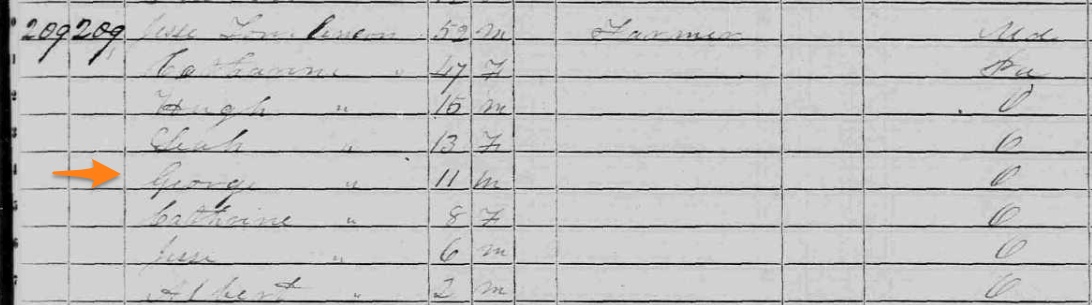 209 209 Jesse Tomlinson 52 m Farmer Md.
Catharine " 47 F Pa
Hugh " 15 m O
Leah " 13 F O
George " 11 m O
Cathrine " 8 F O
Jesse " 6 m O
Albert " 2 m O